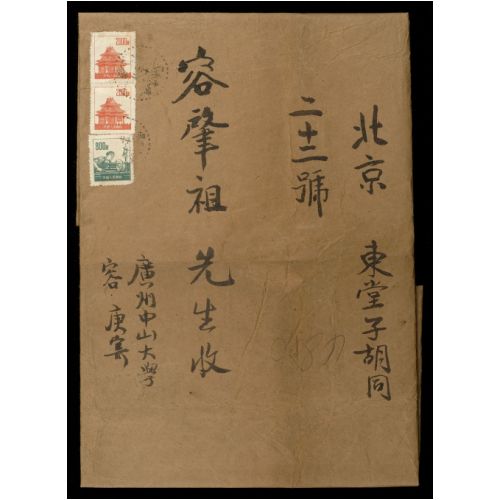 北京 東堂子胡同
二十二號
容肇祖 先生收
廣州中山大學
容·庚寄
800